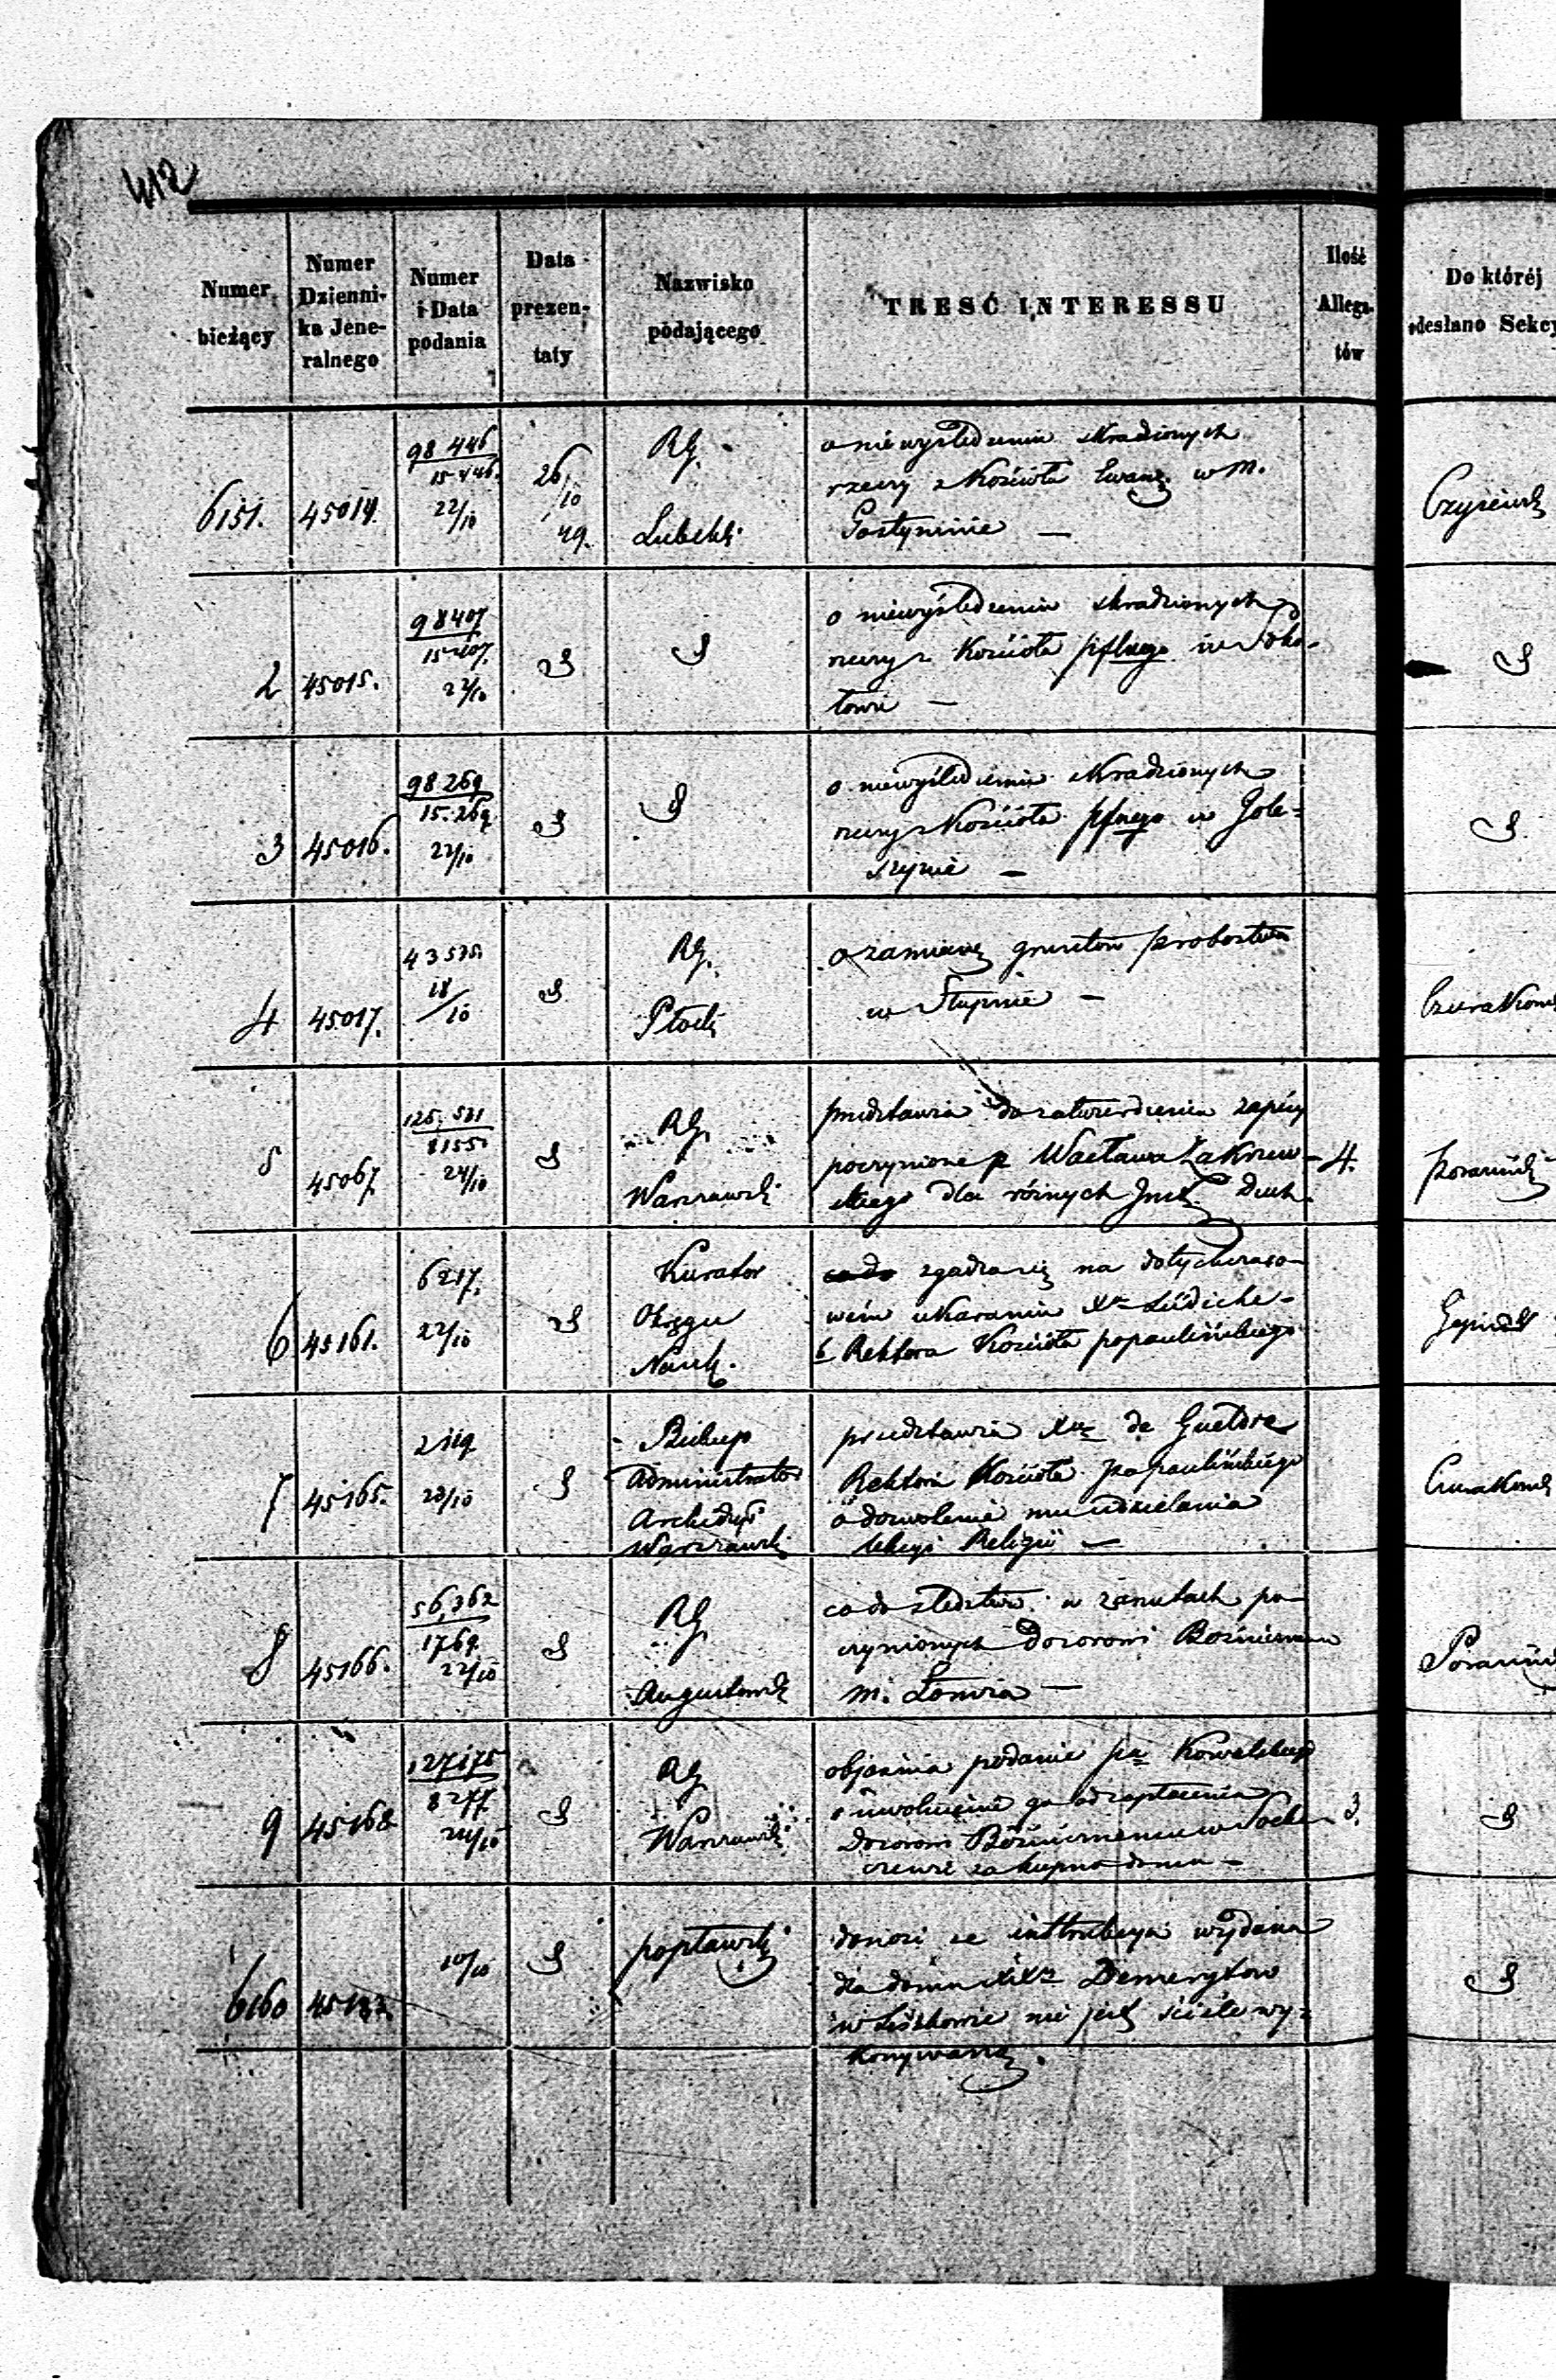 412
Numer bieżący
Numer Dzienni-ka Jene-ralnego
Numer i Data podania
Data prezen-taty
Nazwisko podającego
TRESĆ INTERESSU
Ilość Allega-tów
Do któréj odesłano Sekcy
6151. 45014. 98 446 / 15446. 22/10 26/10 49. RG. Lubelski
o niewyśledzeniu skradzionych
rzeczy z Kościoła Ewang. w M.
Gostyninie —
2 45015. 98407 / 15407. 22/10
o niewyśledzeniu skradzionych
rzeczy z Kościoła pflnego w Soko-
łowie —
3 45016. 98.269 / 15.269 22/10
o niewyśledzeniu skradzionych
rzeczy z Kościoła pflnego w Gole-
szynie —
4 45017. 43535. 18/10 RG. Płocki
o zamianę gruntów probostwa
w Słupnie —
5 45067. 126,531 / 8155. 24/10 RG. Warszawski
przedstawia do zatwierdzenia zapisy
poczynione p Wacława Zakrzew-
skiego dla różnych Inst. Duch. 4.
6 45161. 6217. 22/10 Kurator Okręgu Nauk.
zgadza się na dotychczaso-
wém ukaraniu
b Rektora Kościoła popaulińskiego
7 45165. 2119 23/10 Biskup Administrator Archidyec Warszawski
przedstawia Xa de
Rektora Kościoła popaulińskiego
o dozwolenie mu udzielania
lekcyi Religii —
8 45166. 56,362 / 1769. 22/10 RG Augustowski
co do śledztwa w zarzutach po-
czynionych Dozorowi Bożniczemu
m. Łomża —
9 45168 127175 / 8277. 24/10 RG Warszawski
objaśnia podanie pa Kowalskiego
o uwolnienie go od zapłacenia
Dozorowi Bóżniczemu w Socha- 3.
czewie za kupno domu —
6160 10/10 popławski
donosi że instrukcya wydana
dla domu XXx Demerytów
w Liszkowie nie jest ściśle wy-
konywaną.